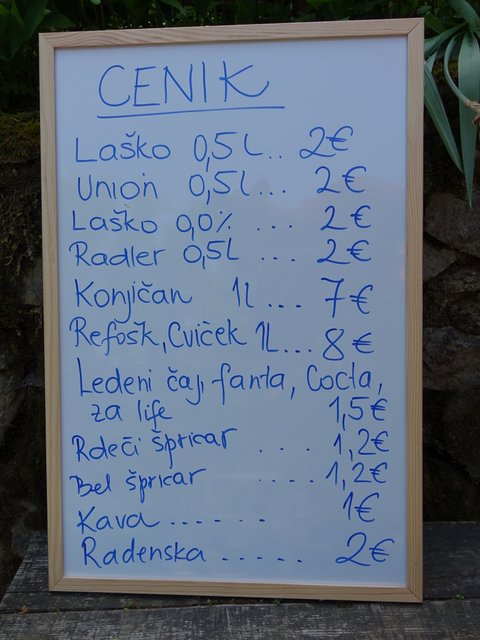 CENIK
Laško 0,5 l.. 2€
Union 0,5 l... 2€
Laško 0,0% ... 2€
Radler 0,5 L ... 2€
Konjičan 1l ... 7€
Refošk, Cviček 1L... 8€
Ledeni čaj, fanta, Cocta,
za life 1,5€
Rdeči špricar . . . 1,2€
Bel špricar ....1,2€
Kava ...... 1€
Radenska ..... 2€